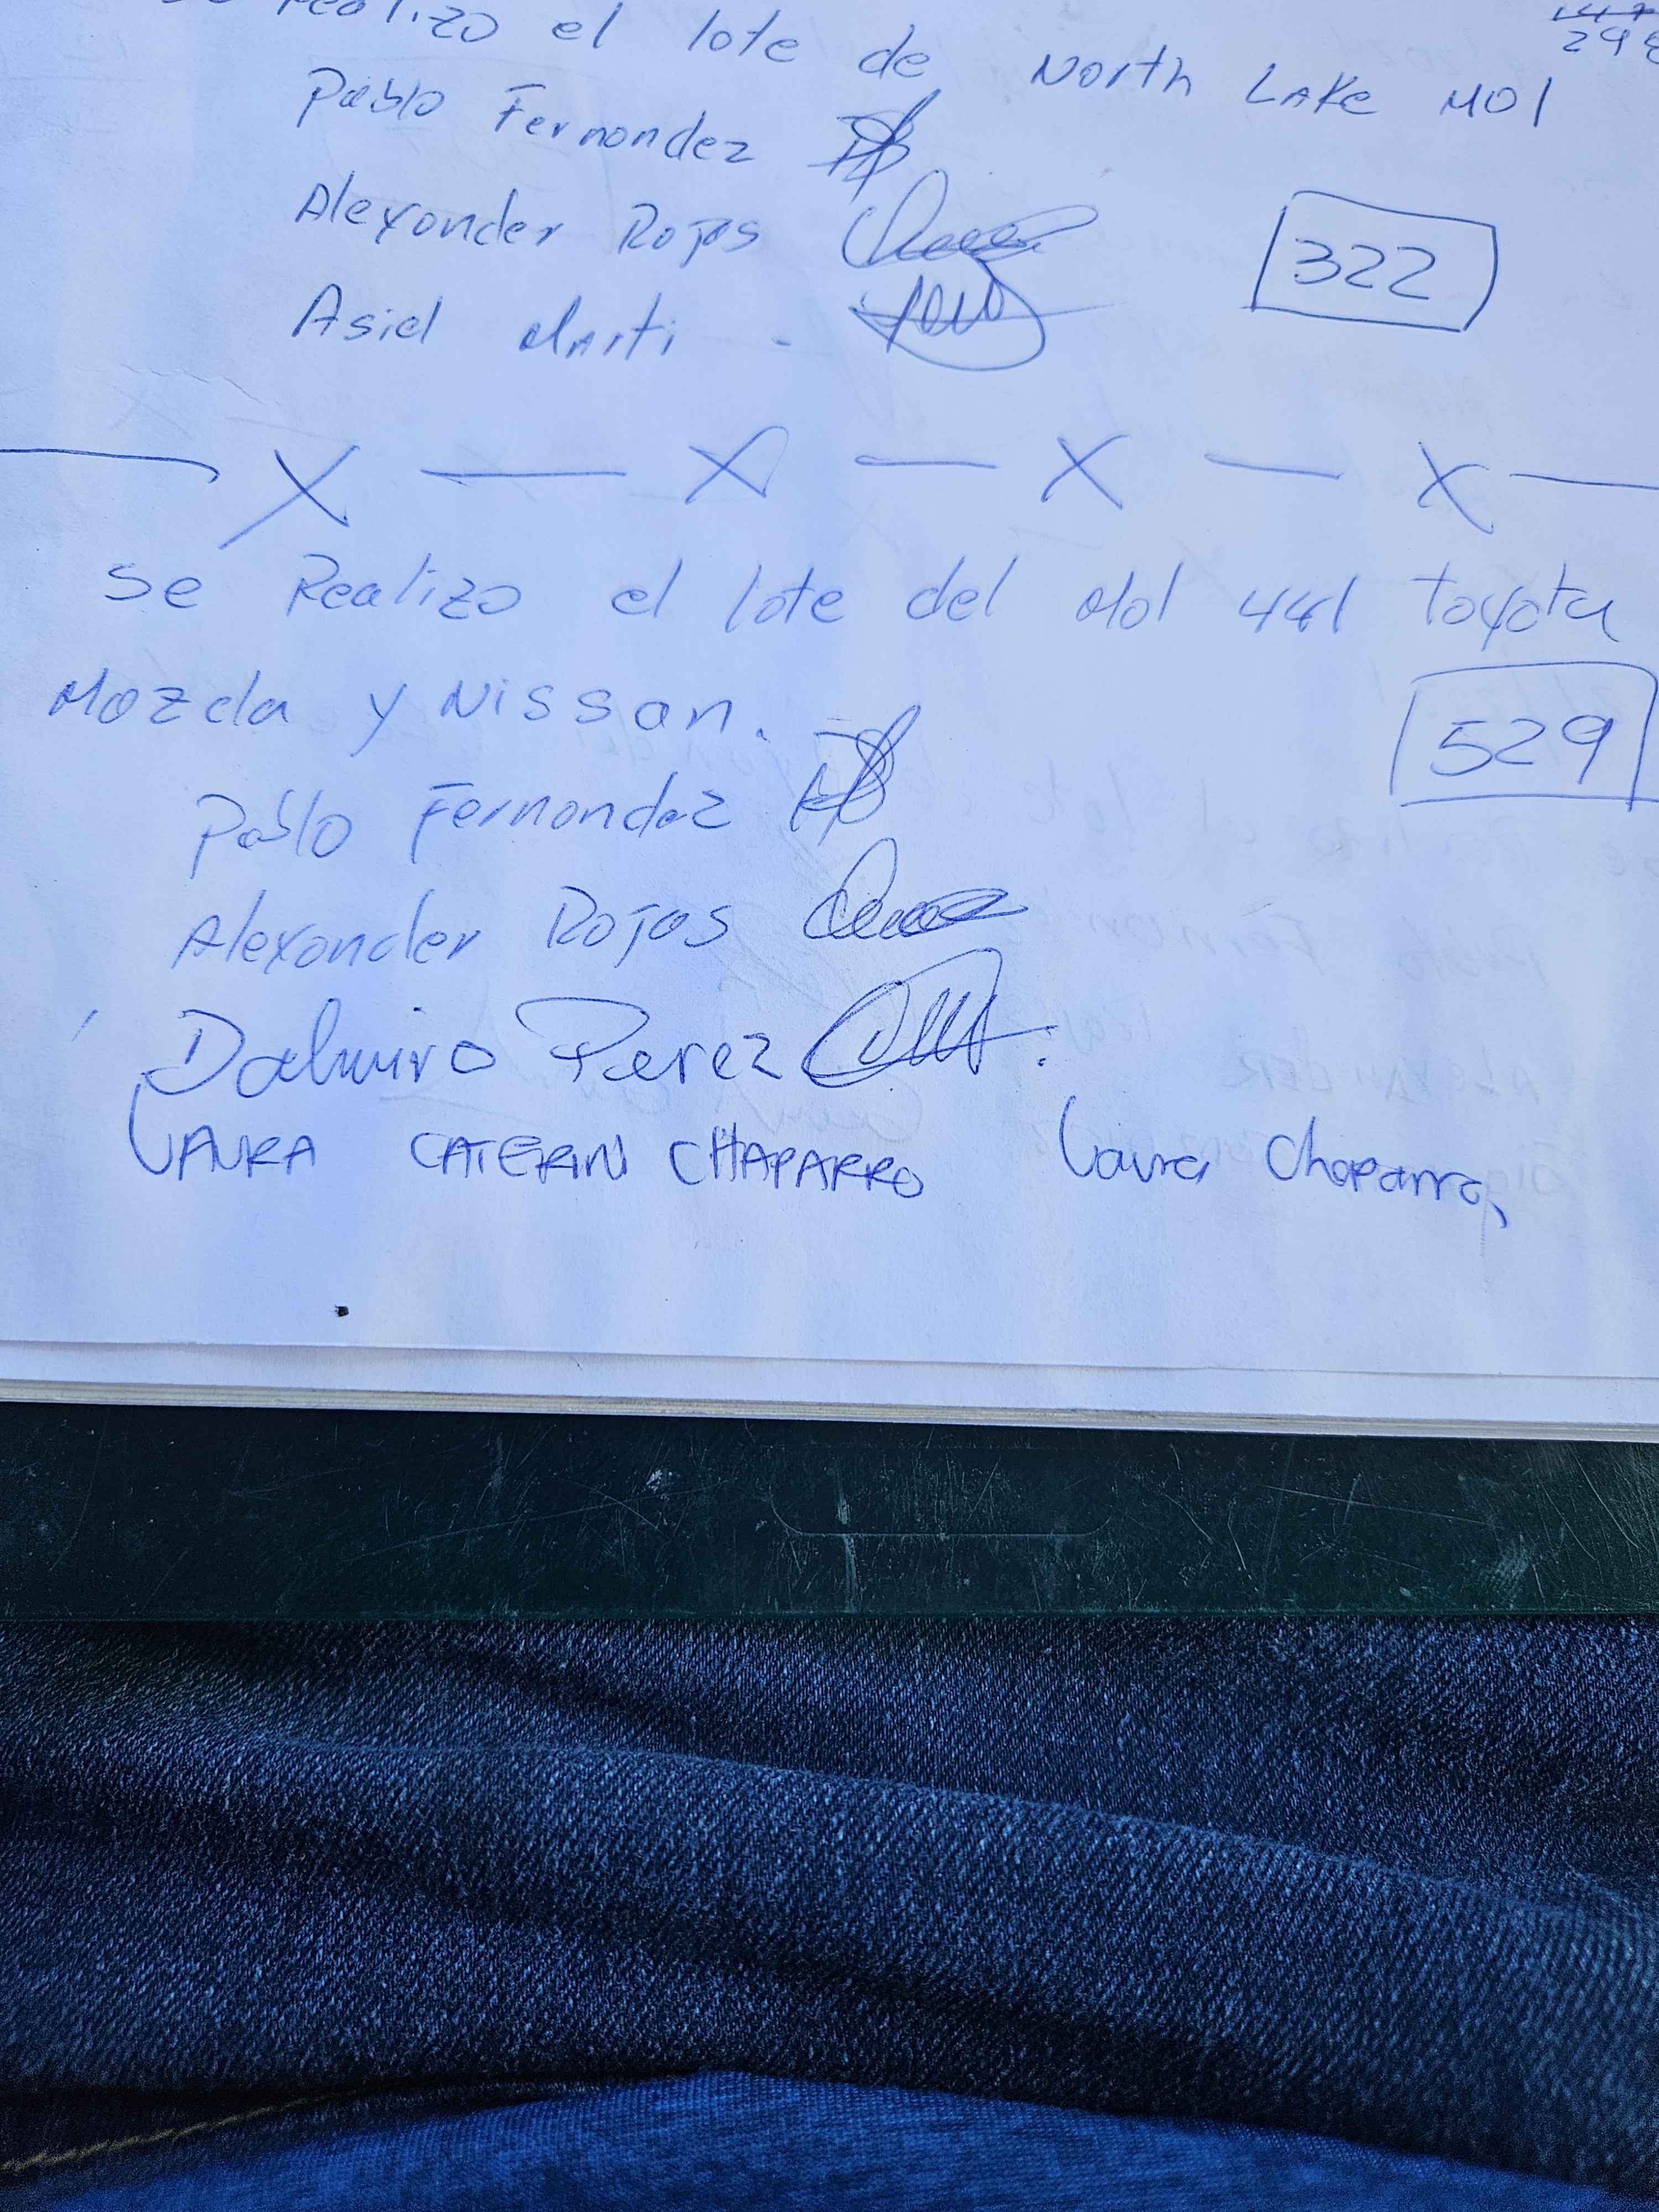 Realizo el lote de North Lake Mol
298
Pablo Fernandez
Alexander Rojas
322
Asiel Marti -
X — X — X — X
Se Realizo el lote del Mol 441 toyota
Mazda y Nissan.
529
Pablo Fernandez
Alexander Rojas
Dalmiro Perez
LAURA CATERIN CHAPARRO Laura Chaparro